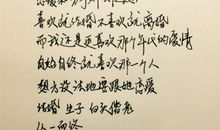 喜欢就结婚 不喜欢就离婚
而我还是更喜欢那个年代的爱情
自始自终就喜欢那一个人
想方设法地要跟她恋爱
结婚 生子 白头偕老
从一而终